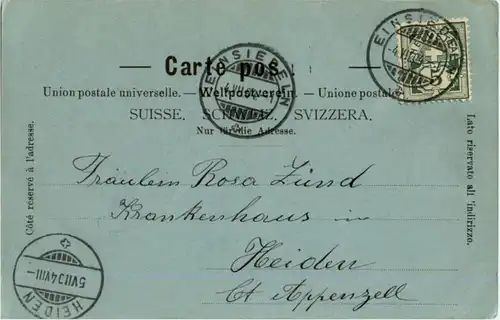 Carte pos
Union postale universelle. — Weltpostverein. — Unione postale
SUISSE. SCHWEIZ. SVIZZERA.
Nur für die Adresse.
Côté réservé à l'adresse.
Lato riservato all'indirizzo.
EINSIEDELN
EINSIEDELN
Fräulein Rosa Zünd
Krankenhaus in
Heiden
Ct Appenzell
HEIDEN
5 VII 04 VIII—